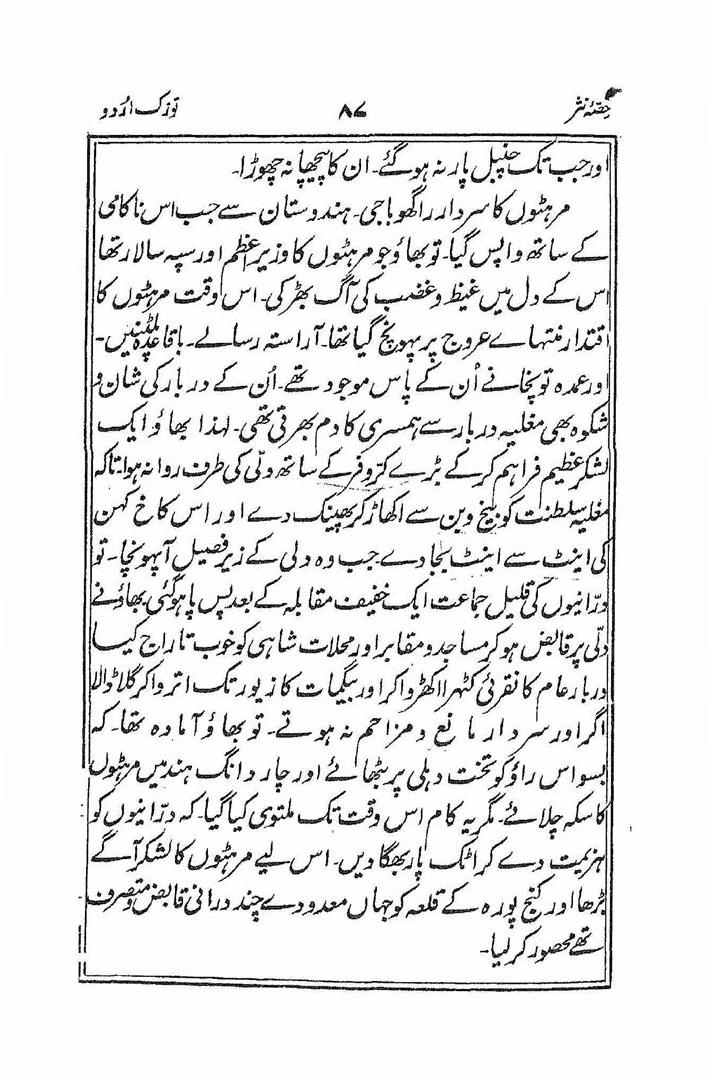 حصّۂ نثر ۸۷ توزک اُردو
اور جب تک چنبل پار نہ ہو گئے۔ ان کا پیچھا نہ چھوڑا۔
مرہٹوں کا سردار راگھوبا جی۔ ہندوستان سے جب اس ناکامی
کے ساتھ واپس گیا۔ تو بھاؤ جو مرہٹوں کا وزیرِ اعظم اور سپہ سالار تھا
اس کے دل میں غیظ و غضب کی آگ بھڑکی۔ اس وقت مرہٹوں کا
اقتدار منتہاے عروج پر پہونچ گیا تھا۔ آراستہ رسالے۔ باقاعدہ پلٹنیں۔
اور عمدہ توپخانے اُن کے پاس موجود تھے۔ اُن کے دربار کی شان و
شکوہ بھی مغلیہ دربار سے ہمسری کا دم بھرتی تھی۔ لہذا بھاؤ ایک
لشکرِ عظیم فراہم کر کے بڑے کروفر کے ساتھ دلّی کی طرف روانہ ہوا۔ تاکہ
مغلیہ سلطنت کو بیخ وبن سے اکھاڑ کر پھینک دے اور اس کاخ کہن
کی اینٹ سے اینٹ بجا دے جب وہ دلی کے زیر فصیل آپہونچا۔ تو
درّانیوں کی قلیل جماعت ایک خفیف مقابلہ کے بعد پس پا ہو گئی بھاؤ نے
دلّی پر قابض ہو کر مساجد و مقابر اور محلات شاہی کو خوب تاراج کیا
دربار عام کا نقرئی کٹہرا اکھڑوا کر اور بیگمات کا زیور تک اتروا کر گلا ڈالا
اگر اور سردار مانع و مزاحم نہ ہوتے۔ تو بھاؤ آمادہ تھا۔ کہ
بسواس راؤ کو تخت دہلی پر بٹھائے اور چار دانگ ہند میں مرہٹوں
کا سکہ چلائے۔ مگر یہ کام اس وقت تک ملتوی کیا گیا۔ کہ درّانیوں کو
ہزیمت دے کر اٹک پار بھگا دیں۔ اس لیے مرہٹوں کا لشکر آگے
بڑھا اور کنج پورہ کے قلعہ کو جہاں معدودے چند درانی قابض و متصرف
تھے محصور کر لیا۔